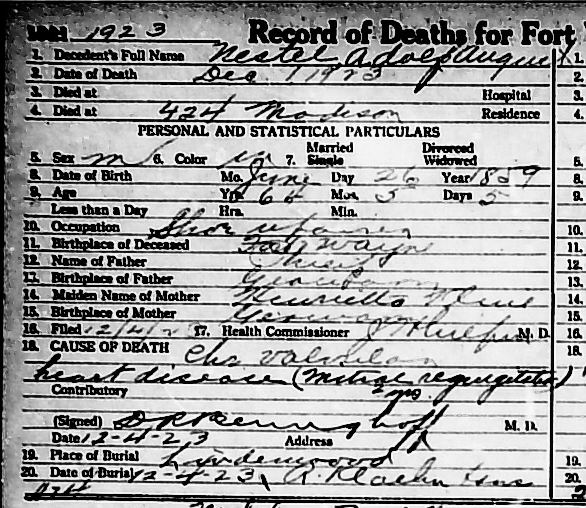 1923 Record of Deaths for Fort
1. Decedent's Full Name Nestel Adolf August 1.
2. Date of Death Dec. 1 1923 2.
3. Died at Hospital 3.
4. Died at 424 Madison Residence 4.
PERSONAL AND STATISTICAL PARTICULARS
5. Sex m 6. Color w 7. Married Single Divorced Widowed 5.
8. Date of Birth Mo. June Day 26 Year 1859 8.
9. Age Yrs. 64 Mos. 5 Days 5 9.
Less than a Day Hrs. Min.
10. Occupation Shoe repairer 10.
11. Birthplace of Deceased Fort Wayne 11.
12. Name of Father 12.
13. Birthplace of Father 13.
14. Maiden Name of Mother Henrietta 14.
15. Birthplace of Mother Germany 15.
16. Filed 12/4/23 17. Health Commissioner M. D. 16.
18. CAUSE OF DEATH Chr valvular 18.
heart disease (mitral regurgitation)
Contributory
(Signed) M. D.
Date 12-4-23 Address
19. Place of Burial Lindenwood 19.
20. Date of Burial 12-4-23 20.